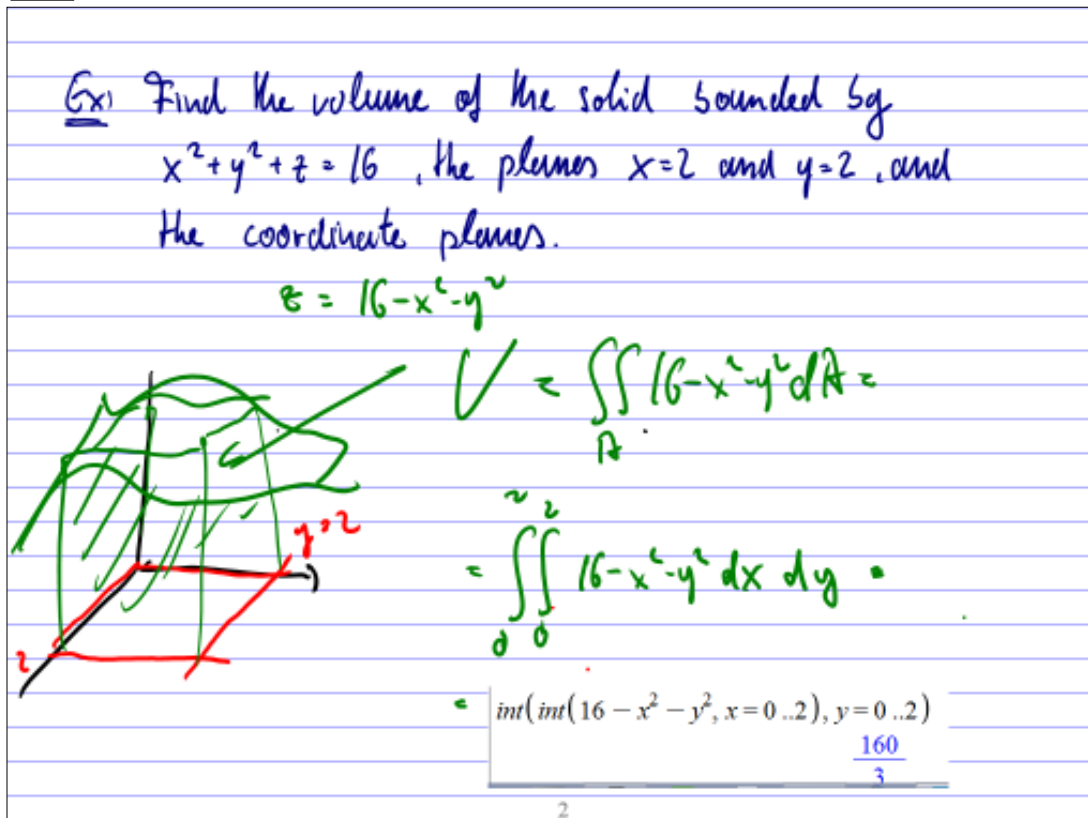 Ex) Find the volume of the solid bounded by
x² + y² + z = 16 , the planes x=2 and y=2 , and
the coordinate planes.
z = 16-x²-y²
V = ∬ 16-x²-y² dA =
A
y=2
= ∫₀² ∫₀² 16-x²-y² dx dy =
2
= int(int(16 − x² − y², x = 0 ..2), y = 0 ..2)
160/3
2